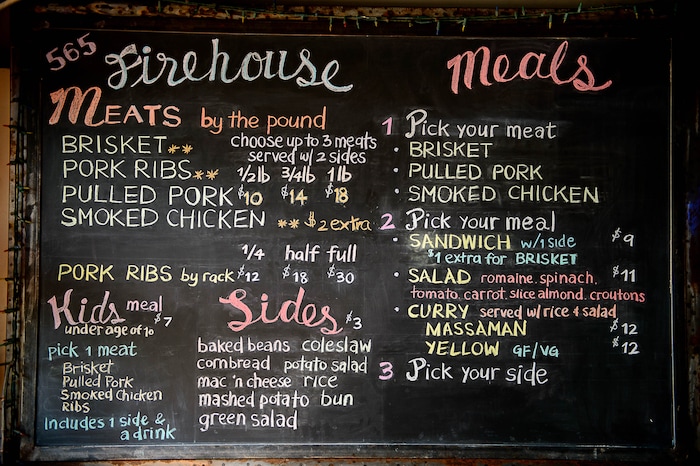 565 Firehouse
MEATS by the pound
BRISKET ** choose up to 3 meats
served w/ 2 sides
PORK RIBS ** 1/2 lb 3/4 lb 1 lb
PULLED PORK $10 $14 $18
SMOKED CHICKEN ** $2 extra
1/4 half full
PORK RIBS by rack $12 $18 $30
Kids meal $7
under age of 10
pick 1 meat
Brisket
Pulled Pork
Smoked Chicken
Ribs
Includes 1 side &
a drink
Sides $3
baked beans coleslaw
cornbread potato salad
mac 'n cheese rice
mashed potato bun
green salad
Meals
1 Pick your meat
· BRISKET
· PULLED PORK
· SMOKED CHICKEN
2 Pick your meal
· SANDWICH w/1 side $9
$1 extra for BRISKET
· SALAD romaine, spinach, $11
tomato, carrot, slice almond, croutons
· CURRY served w/ rice & salad
MASSAMAN $12
YELLOW GF/VG $12
3 Pick your side